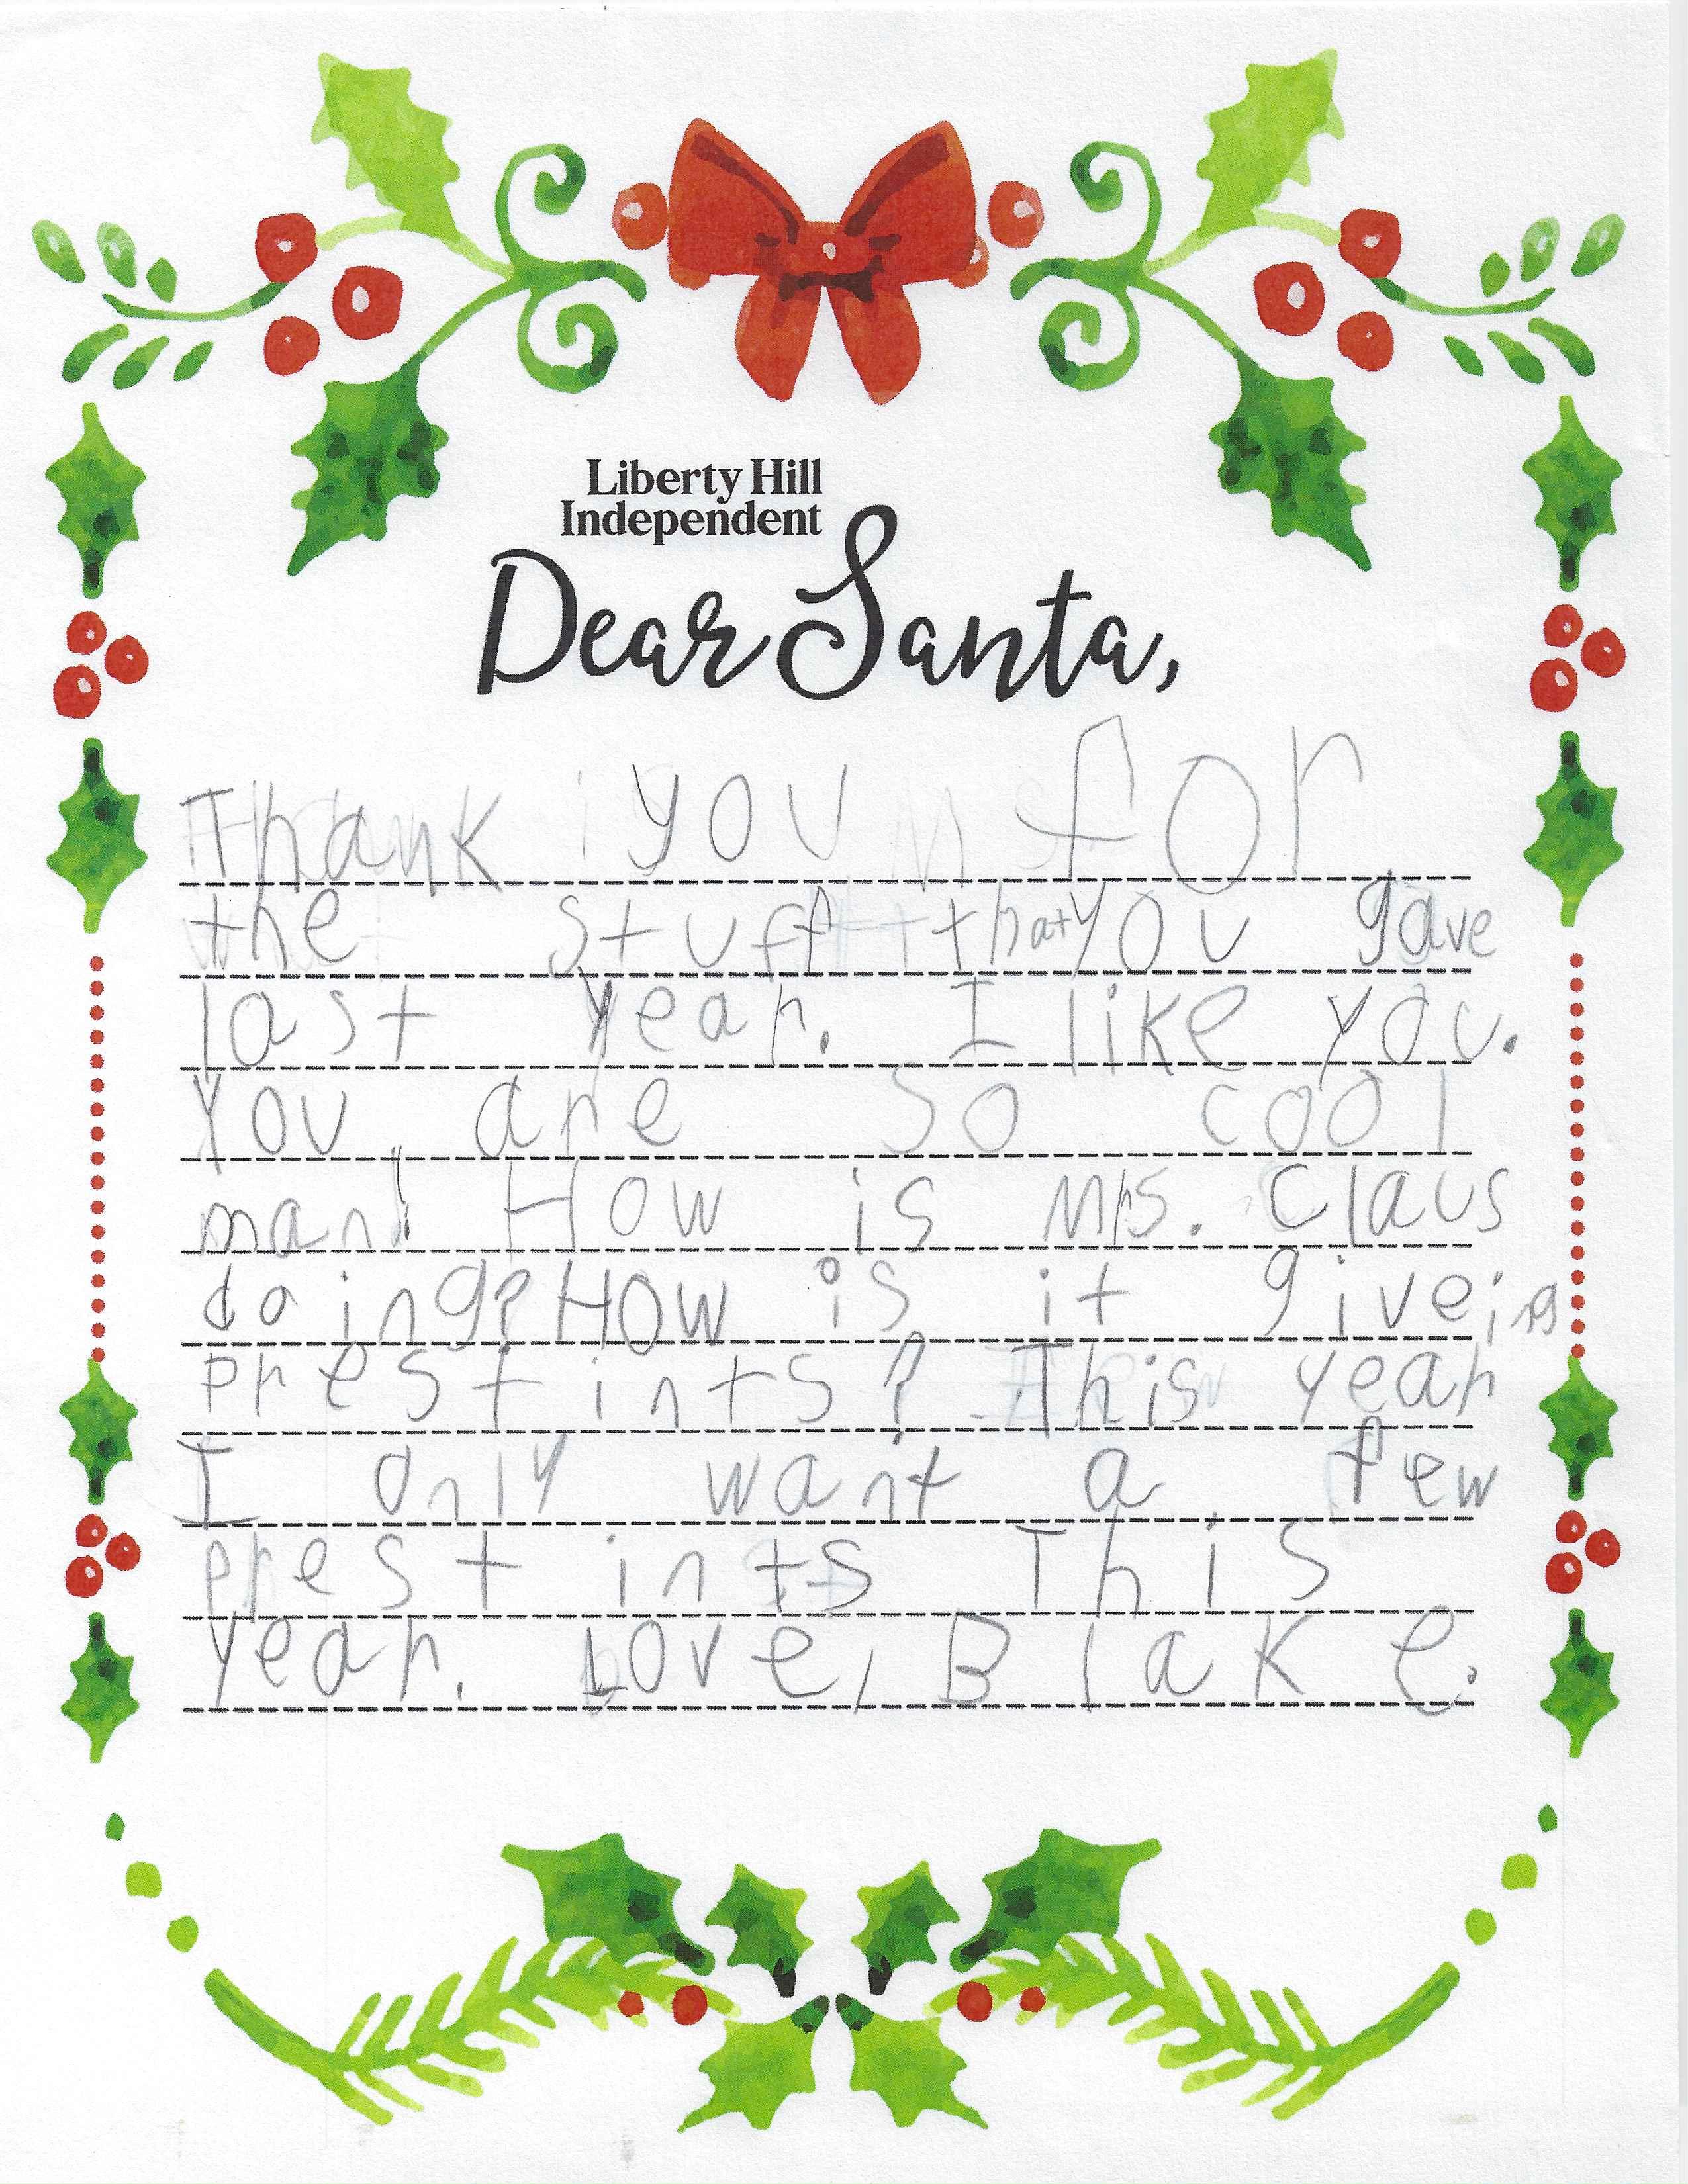 Liberty Hill
Independent
Dear Santa,
Thank you for
the stuff that you gave
last year. I like you.
You are so cool
man! How is Mrs. Claus
doing? How is it giveing
prestints? This year
I only want a few
prestints This
year. Love, Blake.